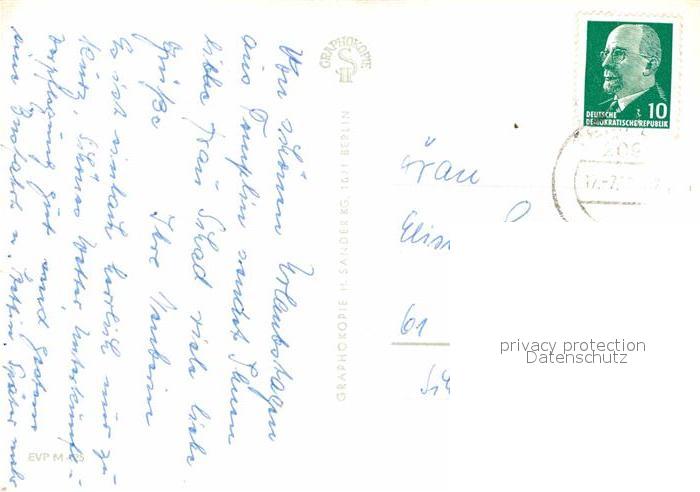 Von schönen Urlaubstagen
aus Templin sendet Ihnen
liebe Frau Schad viele liebe
Grüße Ihre
Es ist einfach herrlich nur zu
kurz. Schönes Wetter Unterkunft u.
Verpflegung gut und gestern
eine u. Später mehr
EVP M
GRAPHOKOPIE
GRAPHOKOPIE H. SANDER KG, 1071 BERLIN
DEUTSCHE
DEMOKRATISCHE REPUBLIK
10
209
17.-7.
Frau
Elis
61
privacy protection
Datenschutz